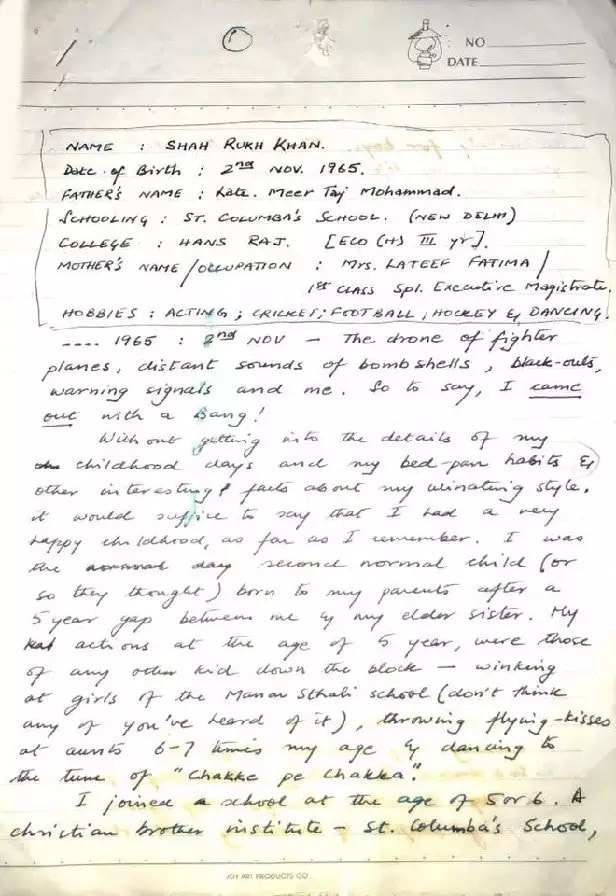 NO
DATE
NAME : SHAH RUKH KHAN.
Date of Birth : 2nd NOV. 1965.
FATHER'S NAME : Late. Meer Taj Mohammad.
SCHOOLING : ST. COLUMBA'S SCHOOL. (NEW DELHI)
COLLEGE : HANS RAJ. [ECO (H) III yr].
MOTHER'S NAME/OCCUPATION : Mrs. LATEEF FATIMA/
1st CLASS Spl. Executive Magistrate.
HOBBIES : ACTING ; CRICKET; FOOTBALL, HOCKEY & DANCING.
---- 1965 : 2nd NOV – The drone of fighter
planes, distant sounds of bombshells, black-outs,
warning signals and me. So to say, I came
out with a bang!
Without getting into the details of my
childhood days and my bed-pan habits &
other interesting facts about my urinating style.
it would suffice to say that I had a very
happy childhood, as far as I remember. I was
the normal day second normal child (or
so they thought) born to my parents after a
5 year gap between me & my elder sister. My
actions at the age of 5 year, were those
of any other kid down the block – winking
at girls of the Manav Sthali school (don't think
any of you've heard of it), throwing flying-kisses
at aunts 6-7 times my age & dancing to
the tune of "Chakke pe Chakka".
I joined a school at the age of 5 or 6. A
christian brother institute – St. Columba's School,
JOY ART PRODUCTS CO.